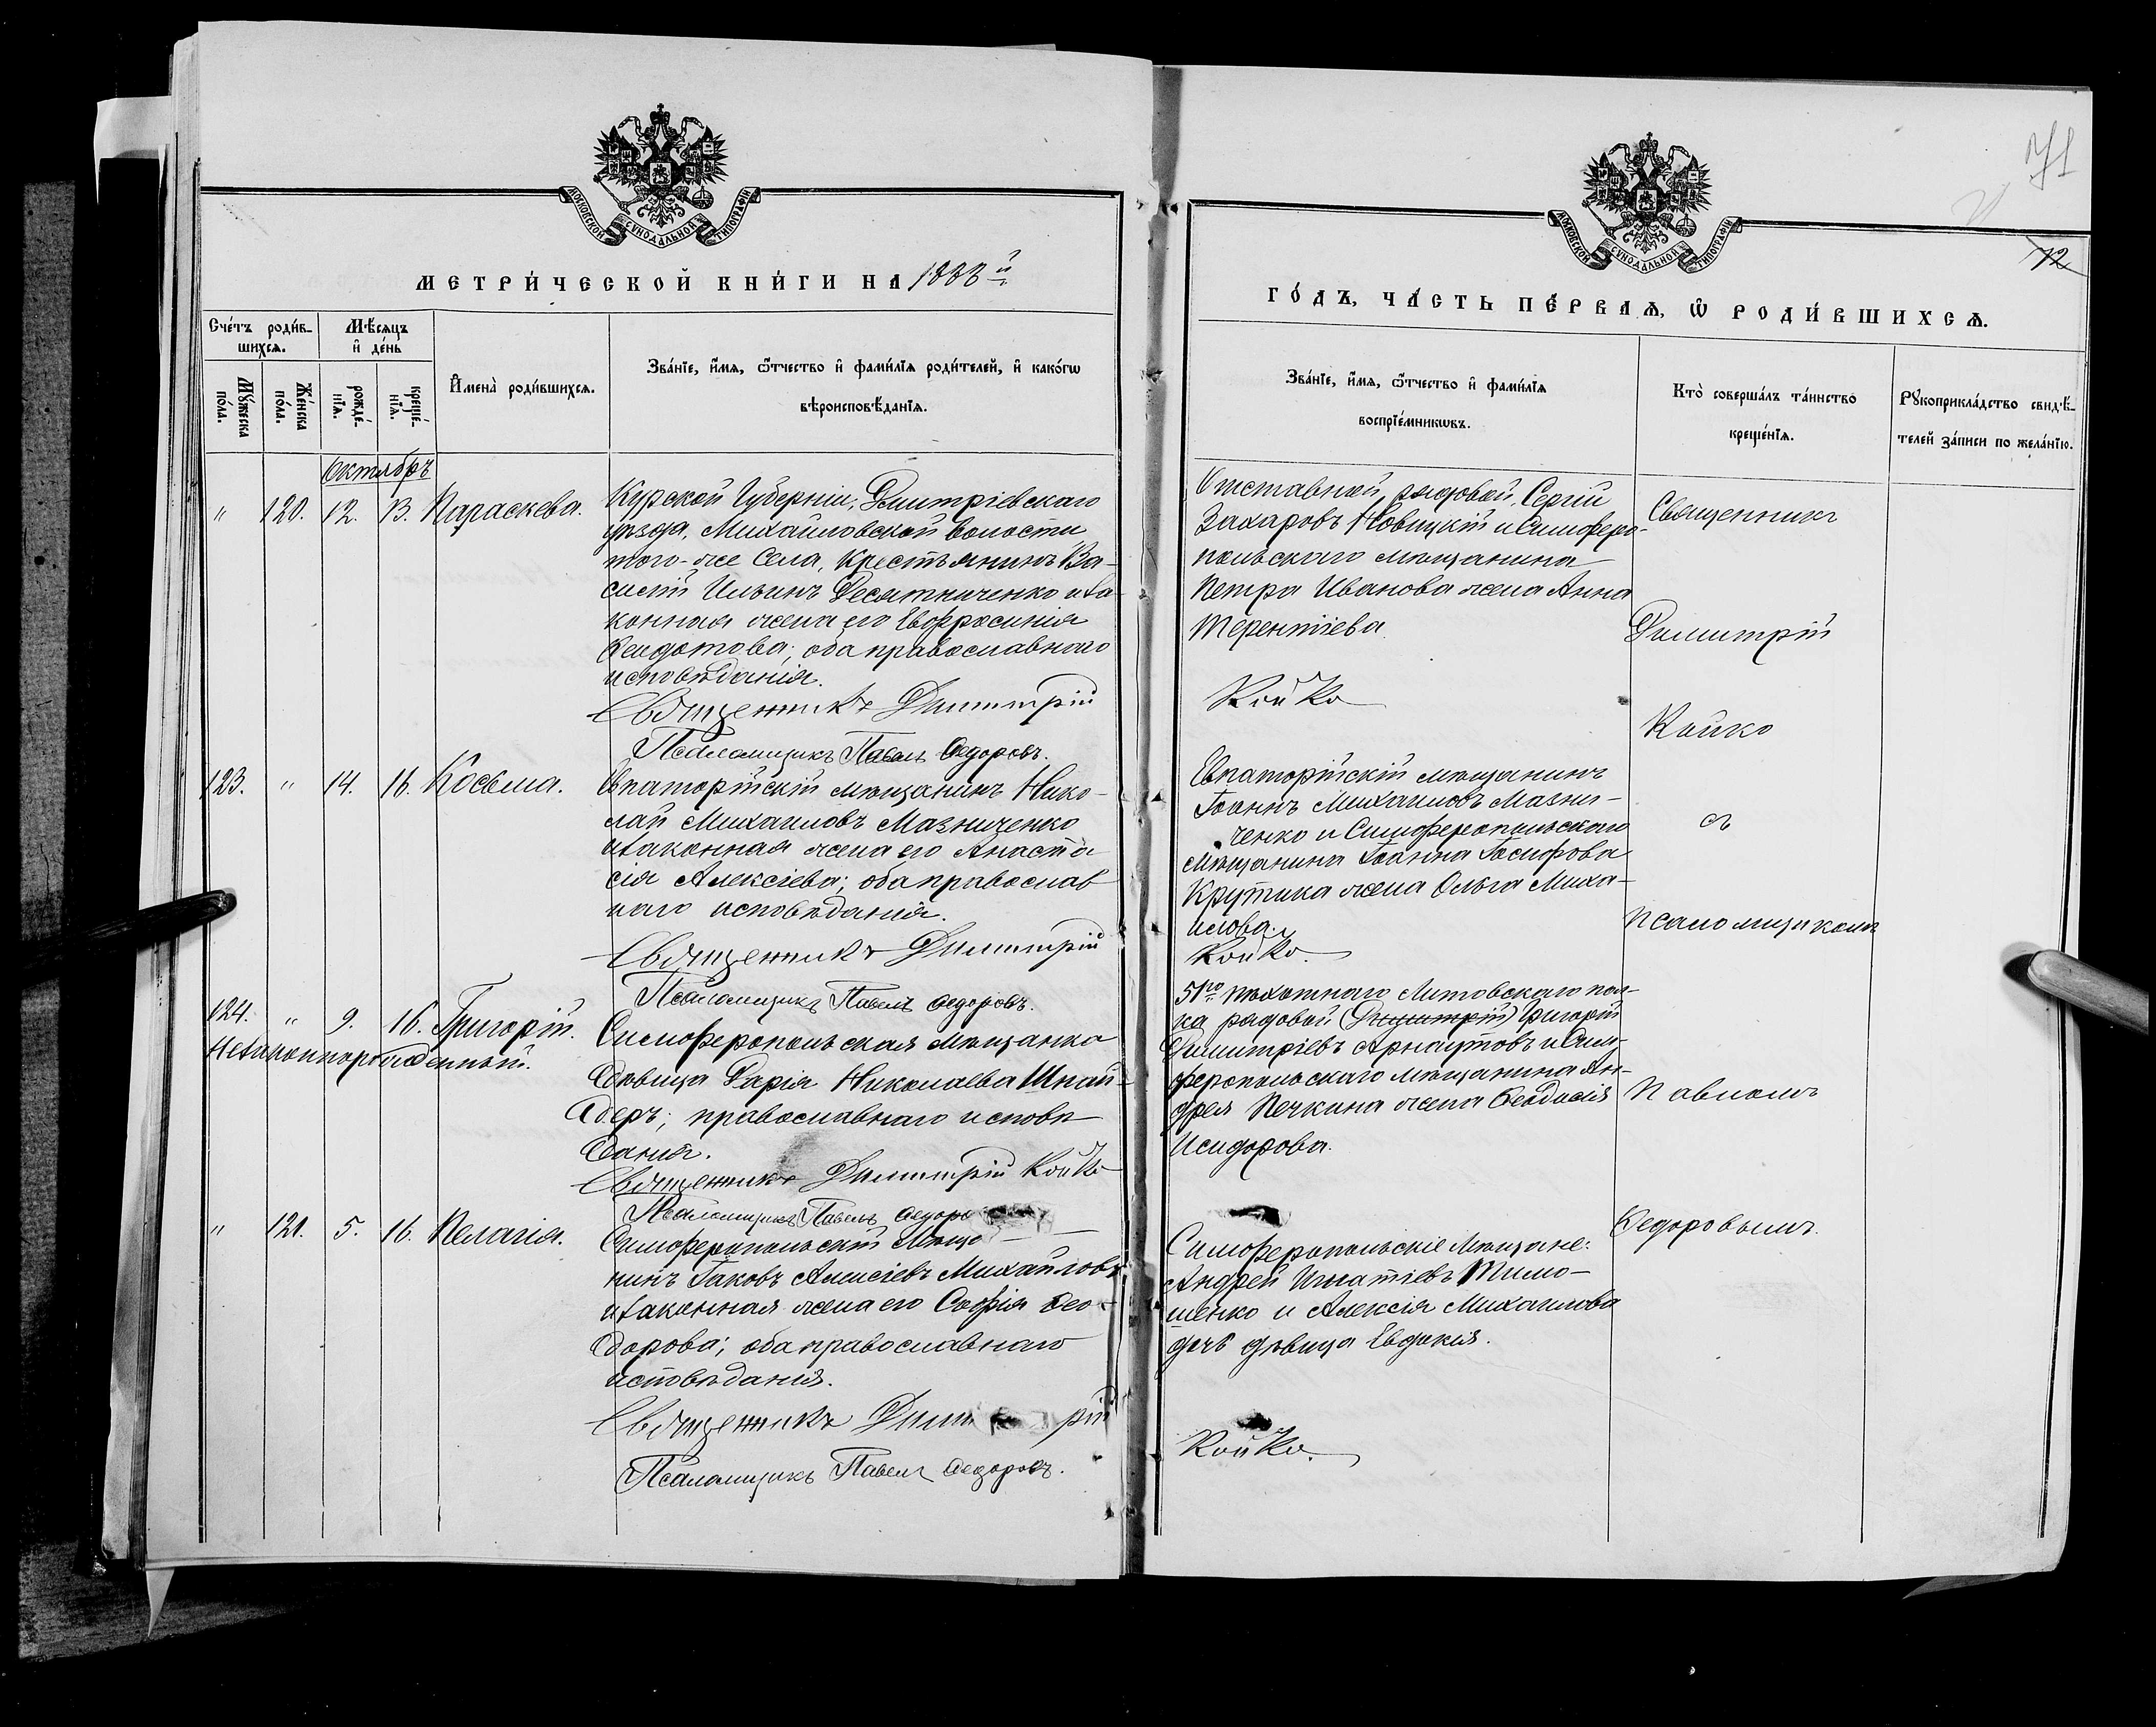 71
12
МОСКОВСКОЙ СѴНОДАЛЬНОЙ ТИПОГРАФІИ
МЕТРИ́ЧЕСКОЙ КНИ́ГИ НА 1888 й
Сче́тъ роди́в-
шихсѧ.
Мѣ́сѧцъ
и҆ де́нь
Мꙋ́жеска
по́ла.
Же́нска
по́ла.
рожде́-
нїѧ.
креще́-
нїѧ.
И҆мена̀ роди́вшихсѧ.
Зва́нїе, и҆́мѧ, ѻ҆́тчество и҆ фами́лїѧ роди́телей, и҆ како́гѡ
вѣроисповѣ́данїѧ.
Октябрь
" 120. 12. 13. Параскева.
Курской Губерніи, Дмитріевскаго
уѣзда, Михайловской волости
того-же Села, Крестьянинъ Ва-
силій Ильинъ Десятниченко и за-
конная жена его Евфросинія
Феодотова; оба православнаго
исповѣданія.
Священникъ Димитрій
Псаломщикъ Павелъ Федоровъ.
123. " 14. 16. Косьма.
Евпаторійскій мѣщанинъ Нико-
лай Михаиловъ Мазниченко
и законная жена его Анаста-
сія Алексіева; оба православ
наго исповѣданія.
Священникъ Димитрій
Псаломщикъ Павелъ Федоровъ.
124. " 9. 16. Григорій.
Незаконнорожденный.
Симферопольская мѣщанка
дѣвица Дарія Николаева Шнай-
деръ; православнаго исповѣ
данія.
Священникъ Димитрій Койко
Псаломщикъ Павелъ Федоро
" 121. 5. 16. Пелагія.
Симферопольскій мѣща-
нинъ Іаковъ Алексіевъ Михайловъ
и законная жена его Софія Ѳео-
дорова; оба православнаго
исповѣданія.
Священникъ Димитрій
Псаломщикъ Павелъ Федоровъ.
МОСКОВСКОЙ СѴНОДАЛЬНОЙ ТИПОГРАФІИ
ГО́ДЪ, ЧА́СТЬ ПЕ́РВАѦ, Ѡ҆ РОДИ́ВШИХСѦ.
Зва́нїе, и҆́мѧ, ѻ҆́тчество и҆ фами́лїѧ
воспрїе́мникѡвъ.
Кто̀ соверша́лъ та́инство
креще́нїѧ.
Рꙋкоприкла́дство свидѣ́-
телей за́писи по жела́нїю.
Отставной рядовой Сергій
Захаровъ Новицкій и Симферо-
польскаго мѣщанина
Петра Иванова жена Анна
Терентіева.
Койко
Евпаторійскій мѣщанинъ
Іоаннъ Михаиловъ Мазни-
ченко и Симферопольскаго
мѣщанина Іоанна Іосифова
Крутика жена Ольга Миха-
илова.
Койко.
51го пѣхотнаго Литовскаго пол-
ка рядовой (Димитрій) Григорій
Димитріевъ Арнаутовъ и Сим-
феропольскаго мѣщанина Ан-
дрея Печкина жена Ѳеодосія
Исидорова.
Симферопольскіе мѣщане:
Андрей Игнатіевъ Тимо-
шенко и Алексія Михаилова
дочь дѣвица Евдокія.
Койко.
Священникъ
Димитрій
Койко
съ
псаломщикомъ
Павломъ
Федоровымъ.